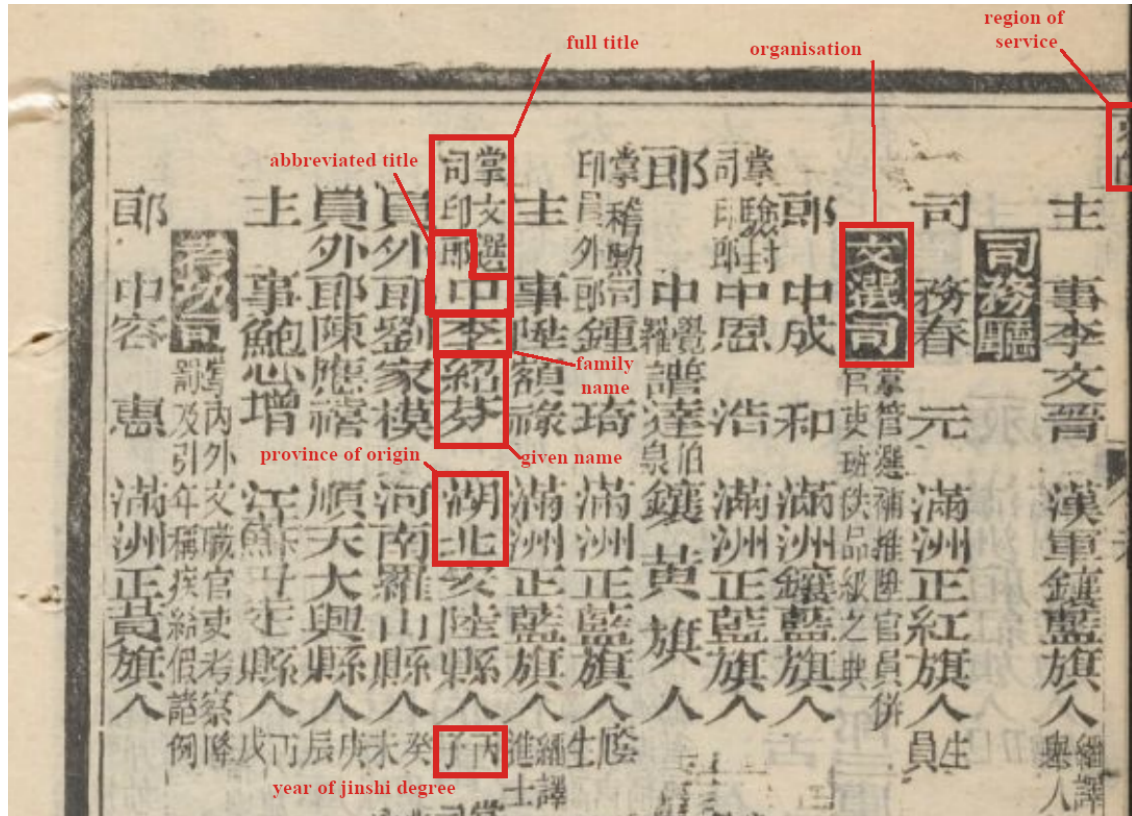 full title
region of service
organisation
abbreviated title
family name
given name
province of origin
year of jinshi degree
主事李文晉 漢軍鑲藍旗人 繙譯舉人
司務廳
司務春元 滿洲正紅旗人 生員
文選司 掌管選補推陞官員併官吏班秩品級之典
郎中成和 滿洲鑲藍旗人
掌驗封司印郎中恩浩 滿洲正藍旗人
郎中覺羅譜達 鑲黃旗人
掌稽勳司印員外郎鍾琦 滿洲正藍旗人 廕生
主事陞額祿 滿洲正藍旗人 繙譯進士
掌文選司印郎中李紹芬 湖北 陸縣人 丙子
員外郎劉家模 河南羅山縣人 癸未
員外郎陳應禧 順天大興縣人 庚辰
主事鮑恩增 江蘇丹 縣人 丙戌
考功司 內外文職官吏考察降罰及引年稱疾給假諸例
郎中容惠 滿洲正黃旗人